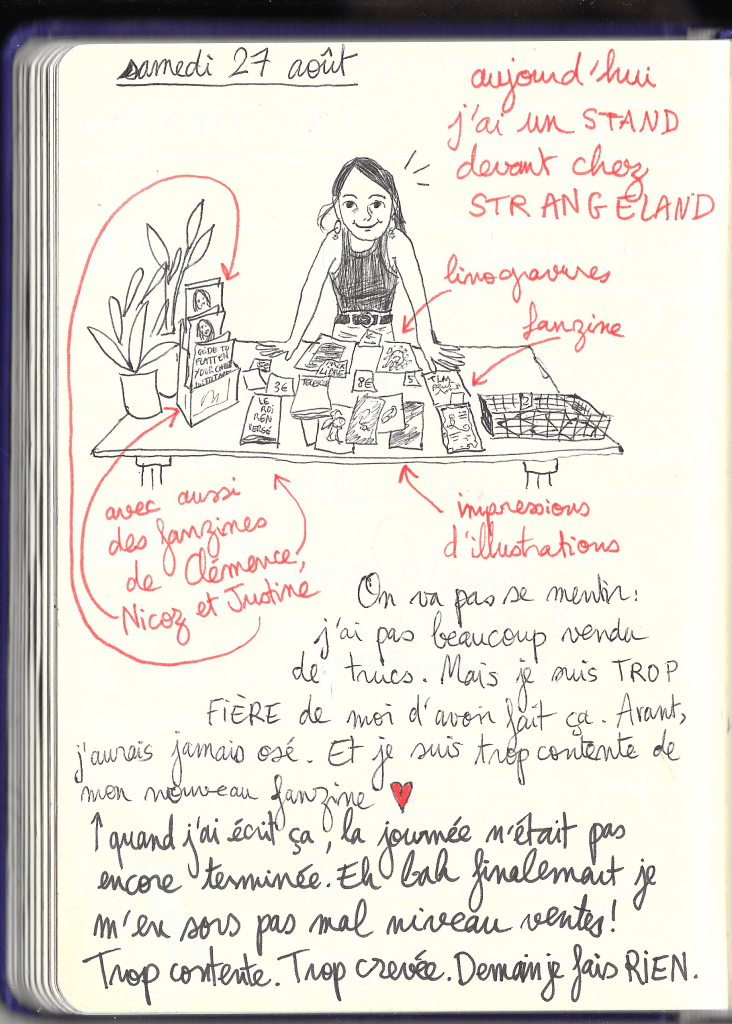 samedi 27 août
aujourd'hui
j'ai un STAND
devant chez
STRANGELAND
linogravures
fanzine
GUIDE TO
FLATTEN
YOUR CHEST
3€
LIBRE
8€
5
TLM
LE
ROI
REN
VERSÉ
avec aussi
des fanzines
de Clémence,
Nicoz et Justine
impressions
d'illustrations
On va pas se mentir :
j'ai pas beaucoup vendu
de trucs. Mais je suis TROP
FIÈRE de moi d'avoir fait ça. Avant,
j'aurais jamais osé. Et je suis trop contente de
mon nouveau fanzine ♥
↑ quand j'ai écrit ça, la journée n'était pas
encore terminée. Eh bah finalement je
m'en sors pas mal niveau ventes !
Trop contente. Trop crevée. Demain je fais RIEN.